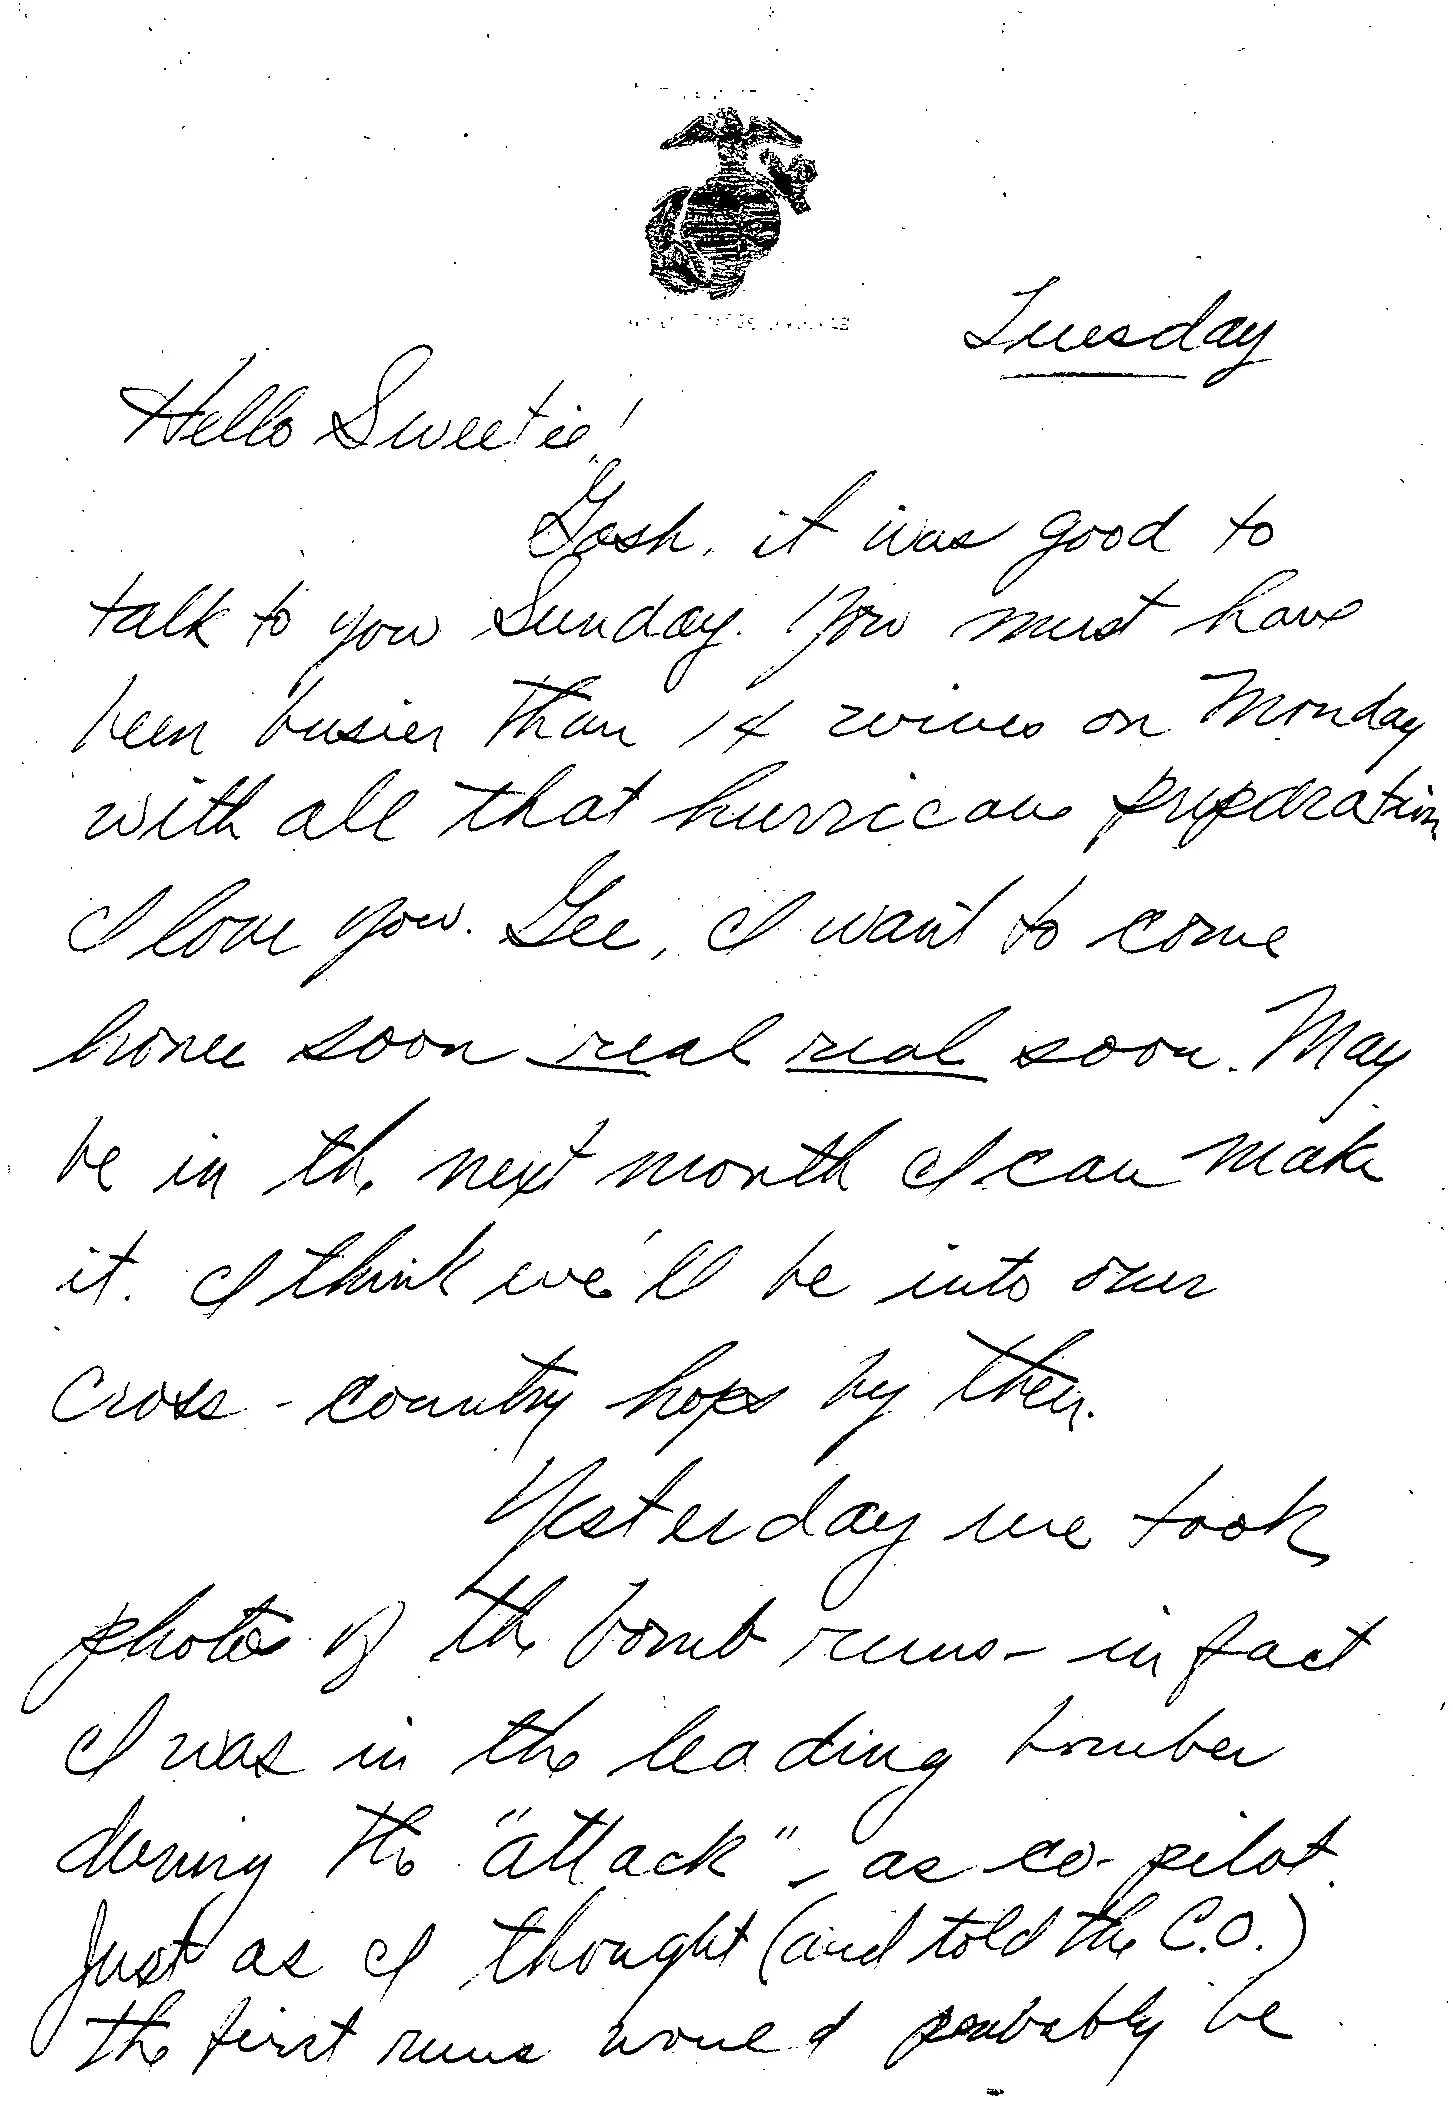 Tuesday
Hello Sweetie!
Gosh, it was good to
talk to you Sunday. You must have
been busier than 14 wives on Monday
with all that hurricane preparation
I love you. Gee, I want to come
home soon real real soon. May
be in the next month I can make
it. I think we'll be into our
cross-country hops by then.
Yesterday we took
photos of the bomb runs - in fact
I was in the leading bomber
during the "attack" - as co-pilot.
Just as I thought (and told the C.O.)
the first runs would probably be